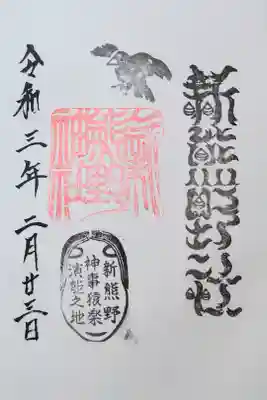 新熊野神社
新熊野
神事猿楽
演能之地
令和三年二月廿三日